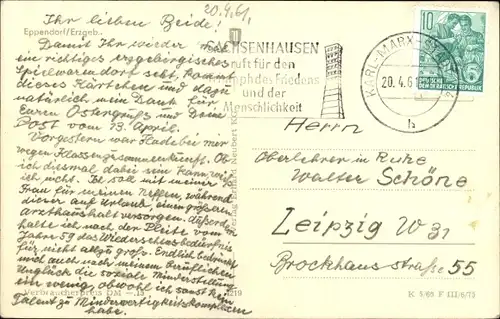 20.4.61.
Eppendorf/Erzgeb.
Ihr lieben Beide!
Damit Ihr wieder mal
ein richtiges erzgebirgisches
Spielwarendorf seht, kommt
dieses Kärtchen und dazu
natürlich mein Dank für
Euren Ostergruß und Deine
Post vom 13. April.
Vorgestern war Flade bei mir
wegen Klassenzusammenkunft. Ob
ich diesmal dabei sein kann, weiß
ich nicht. Es soll mit meiner
Frau für meinen Neffen, während
dieser auf Urlaub, einen größeren
Arzthaushalt versorgen. Außerdem
halte ich nach der Pleite vom
Jahre 59 das Wiedersehensbedürfnis
für nicht allzu groß. Endlich bedrückt
mich auch nach meinem beruflichen
Unglück die soziale Minderstellung
ein wenig, obwohl ich sonst kein
Talent zu Minderwertigkeitskomplexen
habe.
Verbraucherpreis DM
SACHSENHAUSEN
ruft für den
Triumph des Friedens
und der
Menschlichkeit
KARL-MARX-STADT
20.4.61
h
10
DEUTSCHE
DEMOKRATISCHE REPUBLIK
Herrn
Oberlehrer in Ruhe
Walter Schöne
Leipzig W31
Brockhausstraße 55